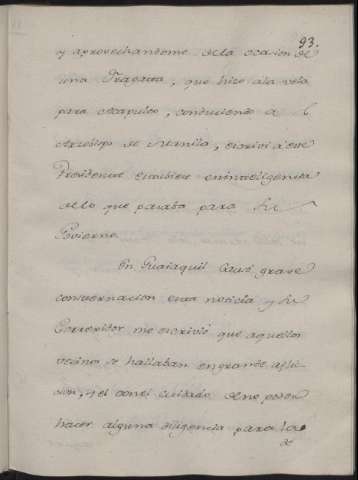 93.
y aprovechandome de la ocasion de
una Fragata, que hizo ala vela
para Acapulco, conduciendo a l
Arzobispo de Manila, escrivi a ese
Presidente estubiese eninteligencia
de lo que pasaba para su
Govierno.
En Guaiaquil causó grave
consternacion esta noticia y su
Corregidor me escrivió que aquellos
vecinos se hallaban engrande aflic-
cion, y el con el cuidado de no poder
hacer alguna diligencia para la